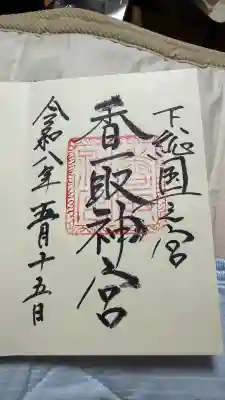 下総国一之宮
香取神宮
令和八年五月十五日